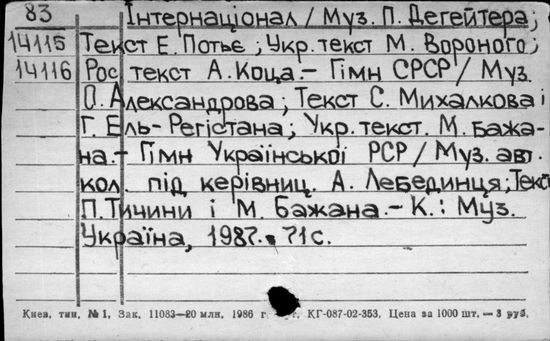 83 Інтернаціонал / Муз. П. Дегейтера;
14115 Текст Е. Потьє; Укр. текст М. Вороного;
14116 Рос. текст А. Коца.- Гімн СРСР / Муз.
О. Александрова; Текст С. Михалкова і
Г. Ель-Регістана; Укр. текст. М. Бажа-
на.- Гімн Української РСР / Муз. авт.
кол. під керівниц. А. Лебединця; Текст
П. Тичини і М. Бажана.- К.: Муз.
Україна, 1987.- 71 с.
Киев, тип. № 1, Зак. 11083—20 млн. 1986 г. КГ-087-02-353. Цена за 1000 шт. — 3 руб.